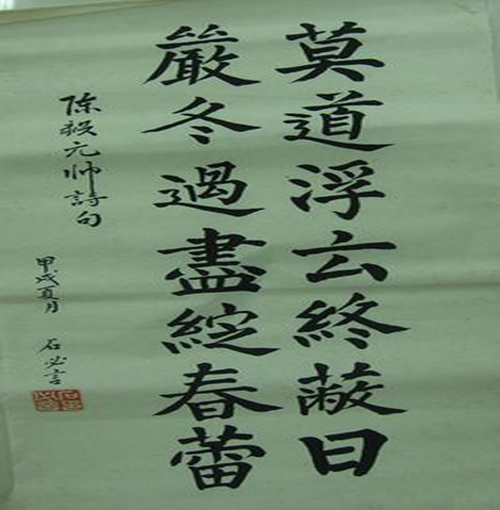 莫道浮云終蔽日
嚴冬過盡綻春蕾
陈毅元帅詩句
甲戌夏月 石必言